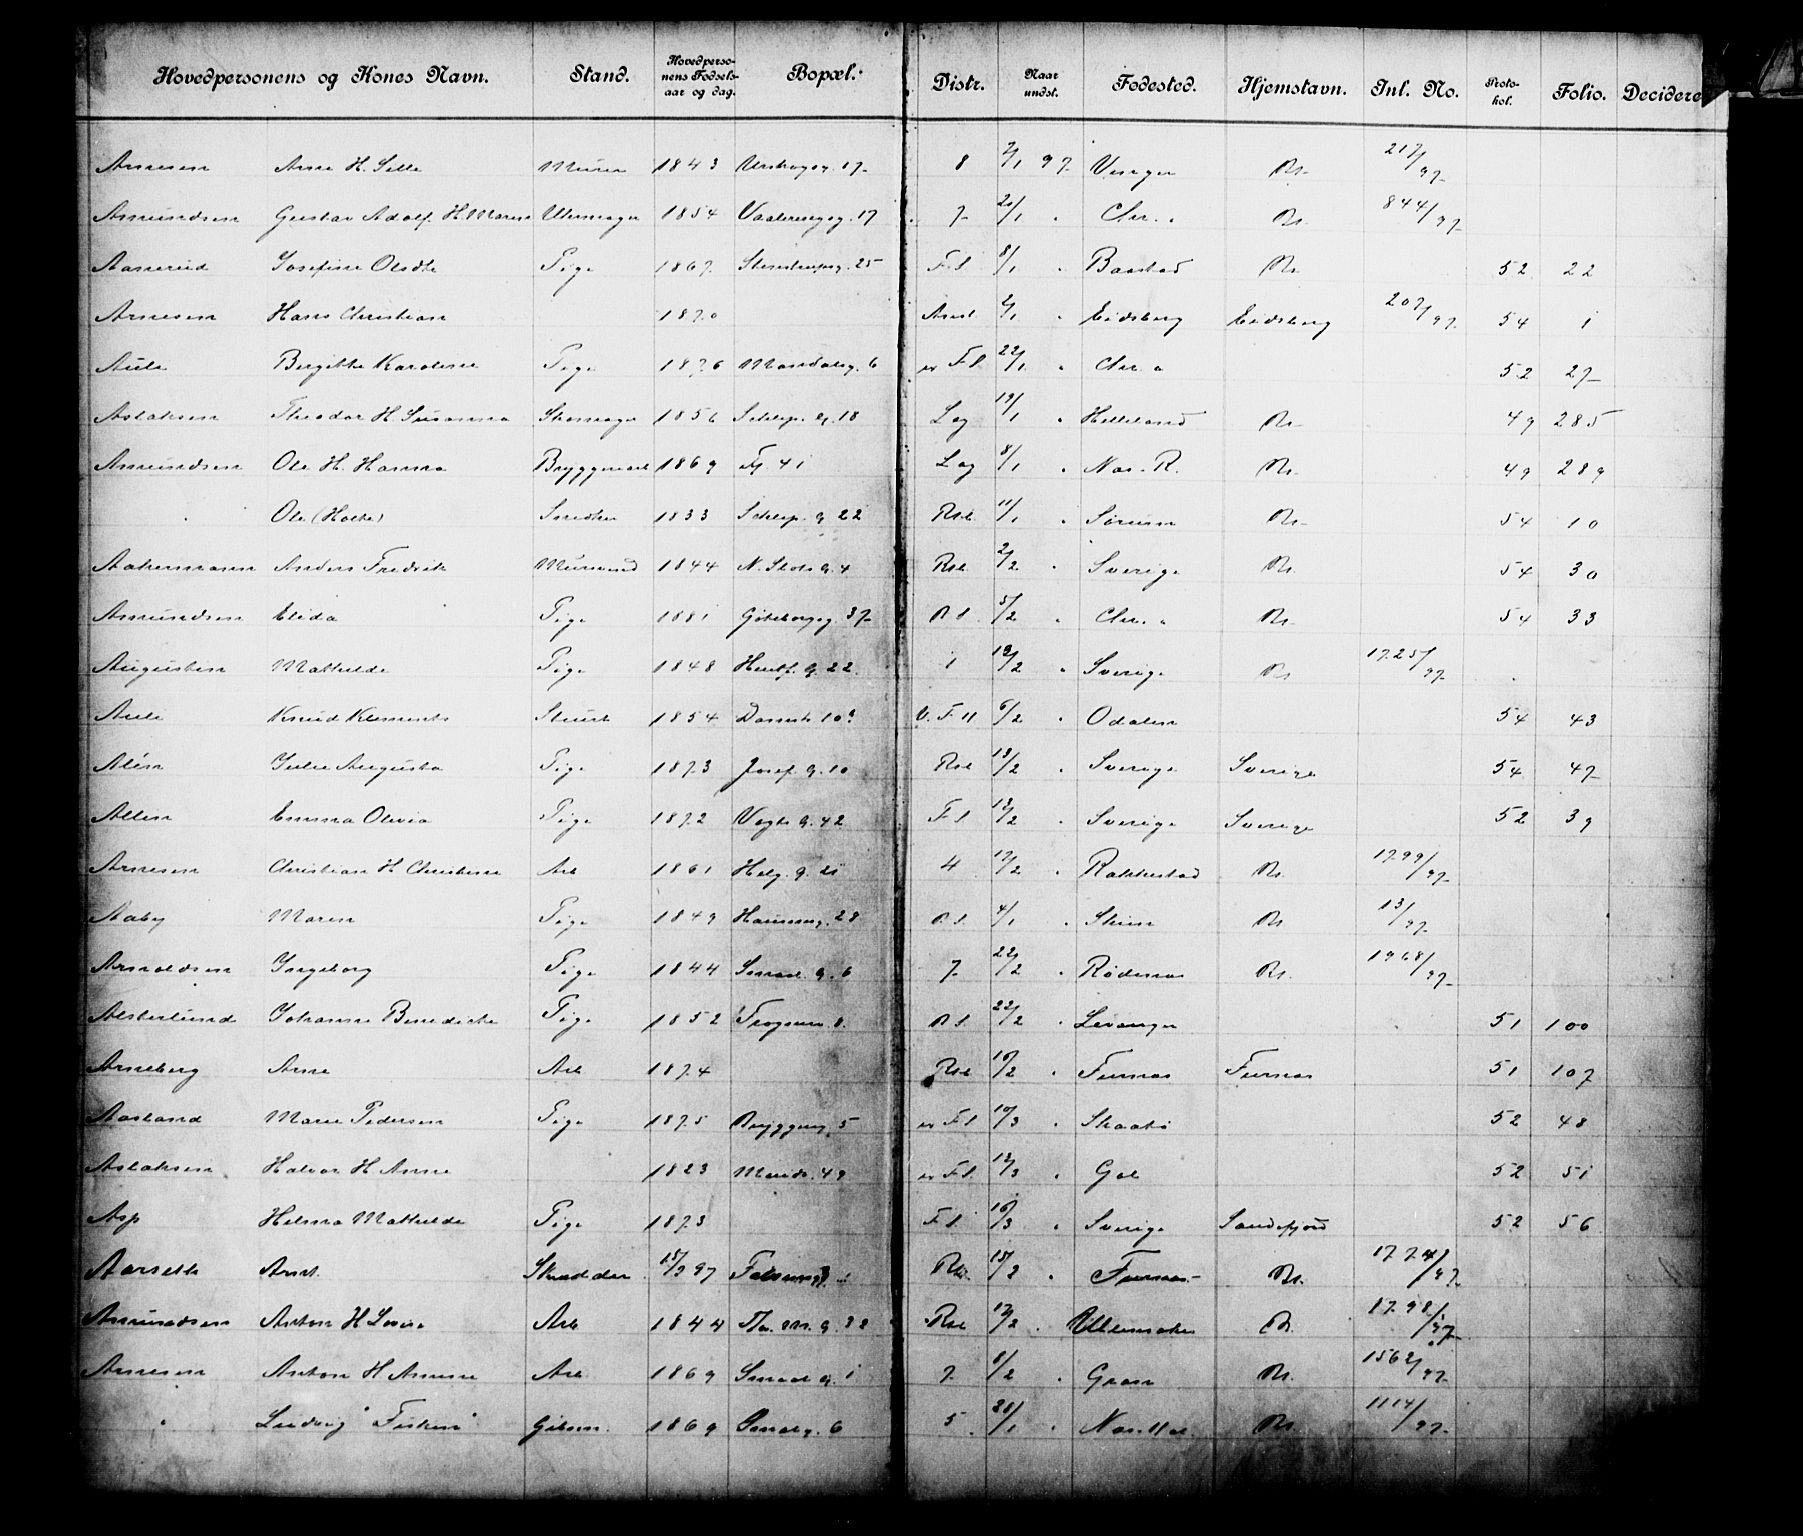 Hovedpersonens og Kones Navn. Stand. Hovedpersonens Fødselsaar og dag. Bopæl. Distr. Naar undst. Fødested. Hjemstavn. Inl. No. Protokol. Folio. Decideret
Arnesen Arne H. Murer 1843 17 8 2/1 97 Vinger Kr. 217/97
Amundsen Gustav Adolf H. Maren Uhrmager 1854 Vaalerengg. 17 7 20/1 " Chr.a Kr. 844/97
Aaserud Josefine Olsdtr Pige 1867 Stenstrupsg. 25 F.l 8/1 " Baastad Kr. 52 22
Arnesen Hans Christian 1870 2/1 " Eidsberg Eidsberg 207/97 54 1
Aule Birgitte Karoline Pige 1876 Mandalsg. 6 F.l 22/1 " Chr.a 52 27
Aslaksen Theodor H. Susanna Skomager 1856 Schlep. g. 18 Lag 19/1 " Helleland Kr. 49 285
Amundsen Ole H. Hanna Bryggearb 1869 41 Lag 8/1 " Nes. R. Kr. 49 289
" Ole (Holte) Snedker 1833 Schlep. g. 22 Rst 11/1 " Sørum Kr. 54 10
Aakermann Anders Fredrik Mursvend 1844 N. Slots g. 4 Rst 2/2 " Sverige Kr. 54 30
Amundsen Elida Pige 1881 Göteborgg. 37 5/2 " Chr.a Kr. 54 33
Augustin Mathilde Pige 1848 g. 22 1 18/2 " Sverige Kr. 1725/97
Aule Knud Klements 1854 V. F. ll 6/2 " Odalen 54 43
Alén Julie Augusta Pige 1873 Josef. g. 10 Rst 13/2 " Sverige Sverige 54 47
Allin Emma Olivia Pige 1872 Vogts g. 42 F.l 12/2 " Sverige Sverige 52 39
Arnesen Christian H. Christine Arb 1861 Helg. g. 4 17/2 " Rakkestad Kr. 1799/97
Aaby Maren Pige 1849 28 4/1 " Skien Kr. 13/97
Arnoldsen Ingeborg Pige 1844 Smaal. g. 6 7 22/2 " Rødenes Kr. 1968/97
Alsterlund Johanne Benedicte Pige 1852 8 22/2 " Levanger 51 100
Arneberg Arne Arb 1874 Rst 16/2 " Furnes Furnes 51 107
Aasland Marie Pedersen Pige 1875 Bryggerg. 5 F.l 10/3 " Skaatø 52 48
Aslaksen Halvor H. Anne 1823 Marids. 49 F.l 12/3 " Gol 52 51
Asp Hilma Mathilde Pige 1873 F.l 16/3 " Sverige Sandefjord 52 56
Aarseth Arnt Skrædder 15/9 97 Rst 15/2 " Furnes Kr. 1774/97
Amundsen Anton H. Arb 1844 Th. M. g. 32 Rst 17/2 " Ullensaker Kr. 1798/97
Arnesen Anton H. Anne Arb 1869 Smaal g. 1 7 8/2 " Gran Kr. 1562/97
" Ludvig "Fisken" 1869 Smaalg. 6 5 28/1 " Kr. 1114/97